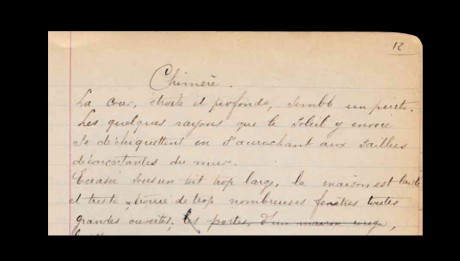 12
Chimère.
La cour, étroite et profonde, semble un puits.
Les quelques rayons que le Soleil y envoie
se déchiquettent en s'accrochant aux saillies
déconcertantes du mur.
Ecrasée sous un toit trop large, la maison est lourde
et triste, de trop nombreuses fenêtres toutes
grandes ouvertes, les portes, d'un marron rouge,